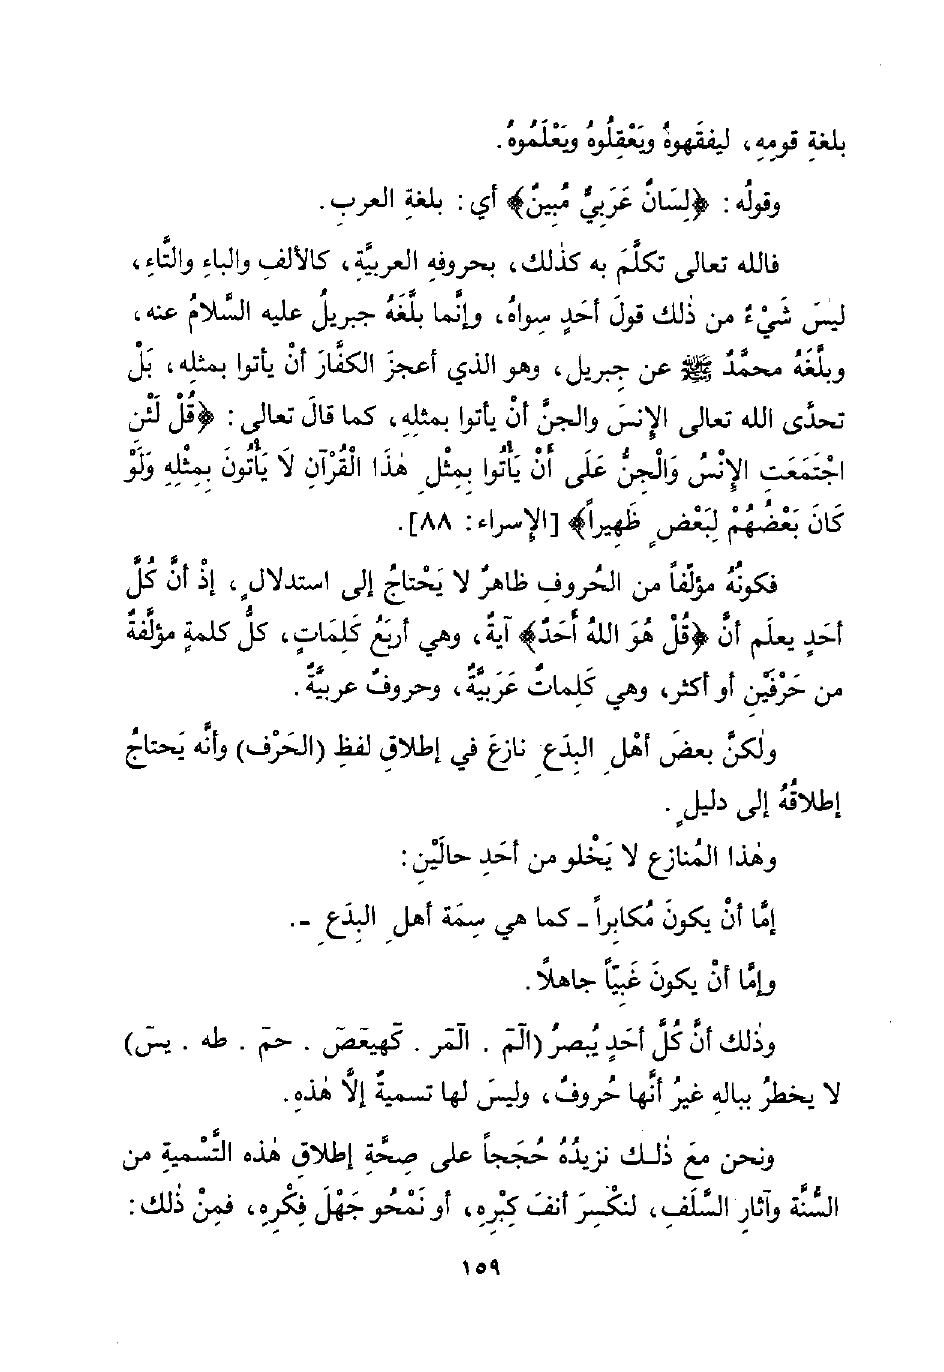 بلغةِ قومِهِ، ليفقَهوهُ ويَعْقِلُوهُ ويَعْلَموهُ.
وقولُه: ﴿لِسَانٌ عَرَبِيٌّ مُبِينٌ﴾ أي: بلغةِ العربِ.
فالله تعالى تكلَّمَ به كذٰلك، بحروفِه العربيَّةِ، كالألفِ والباءِ والتَّاءِ،
ليسَ شَيْءٌ من ذٰلك قولَ أحَدٍ سِواهُ، وإنَّما بلَّغَهُ جبريلُ عليه السَّلامُ عنه،
وبلَّغَهُ محمَّدٌ ﷺ عن جِبريل، وهو الذي أعجزَ الكفَّارَ أنْ يأتوا بمثلِه، بَلْ
تحدَّى الله تعالى الإِنسَ والجنَّ أنْ يأتوا بمثلِهِ، كما قالَ تعالى: ﴿قُلْ لَئن
اجْتَمَعَتِ الإِنْسُ وَالْجِنُّ عَلَى أَنْ يَأْتُوا بِمِثْلِ هٰذَا الْقُرْآنِ لَا يَأْتُونَ بِمِثْلِهِ وَلَوْ
كَانَ بَعْضُهُمْ لِبَعْضٍ ظَهِيراً﴾ [الإِسراء: ٨٨].
فكونُهُ مؤلَّفاً من الحُروفِ ظاهرٌ لا يَحْتاجُ إلى استدلالٍ، إذْ أنَّ كُلَّ
أحَدٍ يعلَم أنَّ ﴿قُلْ هُوَ اللهُ أَحَدٌ﴾ آيةٌ، وهي أربَعُ كَلِمَاتٍ، كلُّ كلمةٍ مؤلَّفةٌ
من حَرْفَيْنِ أو أكثر، وهي كَلِماتٌ عَرَبيَّةٌ، وحروفٌ عربيَّةٌ.
ولٰكنَّ بعضَ أهْلِ البِدَعِ نازعَ في إطلاقِ لفظِ (الحَرْف) وأنَّه يَحتاجُ
إطلاقُهُ إلى دليلٍ.
وهٰذا المُنازع لا يَخْلو من أحَدِ حالَيْنِ:
إمَّا أنْ يكونَ مُكابِراً ـ كما هي سِمَة أهلِ البِدَعِ ـ.
وإمَّا أنْ يكونَ غَبيّاً جاهلاً.
وذٰلك أنَّ كُلَّ أحَدٍ يُبصرُ (الٓمٓ . الٓمٓر . كٓهيعٓصٓ . حمٓ . طه . يسٓ)
لا يخطرُ ببالهِ غيرُ أنَّها حُروفٌ، وليسَ لها تسميةٌ إلَّا هٰذهِ.
ونحن مَعَ ذٰلك نزيدُهُ حُجَجاً على صِحَّةِ إطلاقِ هٰذه التَّسْميةِ من
السُّنَّة وآثارِ السَّلَفِ، لنكْسِرَ أنفَ كِبْرِهِ، أو نَمْحُو جَهْلَ فِكْرِهِ، فمِنْ ذٰلك:
١٥٩